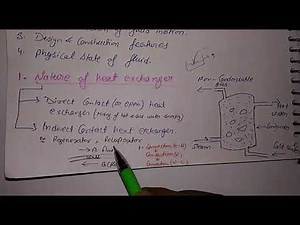 of fluid motion.
3. Design & Construction features
4. Physical state of fluid.
1. Nature of heat exchanger
→ Direct Contact (or open) heat
exchanger (mixing of hot & cold water directly)
→ Indirect Contact heat exchanger
Regenerator, Recuperator
Non-Condensable
Hot
water
Steam
Cold water